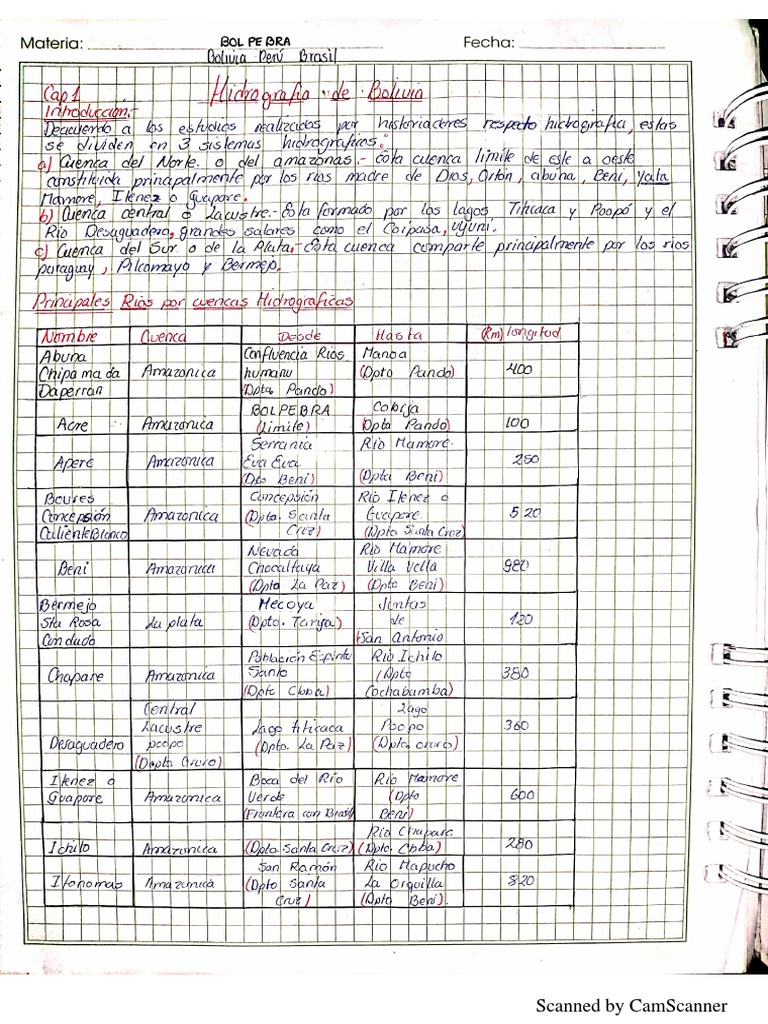 Materia: BOL PE BRA Fecha:
Bolivia Perú Brasil
Cap 1 Hidrografia de Bolivia
Introducción.-
Deacuerdo a los estudios realizados por historiadores respecto hidrografia, estas
se dividen en 3 sistemas hidrograficas:
a) Cuenca del Norte o del amazonas.- Esta cuenca limite de este a oeste
constituida principalmente por los rios madre de Dios, Orton, abuna, Beni, Yata
Mamore, Itenez o Guapore.
b) Cuenca central o Lacustre.- Esta formado por los lagos, Titicaca y Poopó y el
Rio Desaguadero, grandes salares como el Coipasa, uyuni.
c) Cuenca del Sur o de la Plata.- Esta cuenca comparte principalmente por los rios
paraguay, Pilcomayo y Bermejo.
Principales Rios por cuencas Hidrograficas
Nombre Cuenca Desde Hasta (Km) longitud
Abuna Confluencia Rios Manoa
Chipamada Amazonica humanu (Dpto Pando) 400
Daperran (Dpta Pando)
BOLPEBRA Cobija
Acre Amazonica (Limite) (Dpta Pando) 100
Serrania Rio Mamore
Apere Amazonica Eva Eva 250
(Dto Beni) (Dpta Beni)
Boures Concepsión Rio Itenez o
Concepsión Amazonica (Dpta. Santa Guapore 520
CalienteBlanco Cruz) (Dpta Santa Cruz)
Nevada Rio Mamore
Beni Amazonica Chocaltaya Villa Vella 980
(Dpta La Paz) (Dpto Beni)
Bermejo Mecoya Juntas
Sta Rosa La plata (Dpto. Tarija) de 120
Condado San Antonio
Población Espiritu Rio Ichilo
Chapare Amazonica Santo (Dpto 380
(Dpto Cbba) Cochabamba)
Central Lago
Lacustre Lago titicaca Poopo 360
Desaguadero poopo (Dpto. La Paz) (Dpto oruro)
(Depto Oruro)
Itenez o Boca del Rio Rio Mamore
Guapore Amazonica Verde (Dpto 600
(Frontera con Brasil) Beni)
Rio Chapare
Ichilo Amazonica (Dpto Santa Cruz) (Dpto. Cbba) 280
San Ramón Rio Mapucho
Itonomas Amazonica (Dpto Santa La Orquilla 820
Cruz) (Dpto Beni)
Scanned by CamScanner